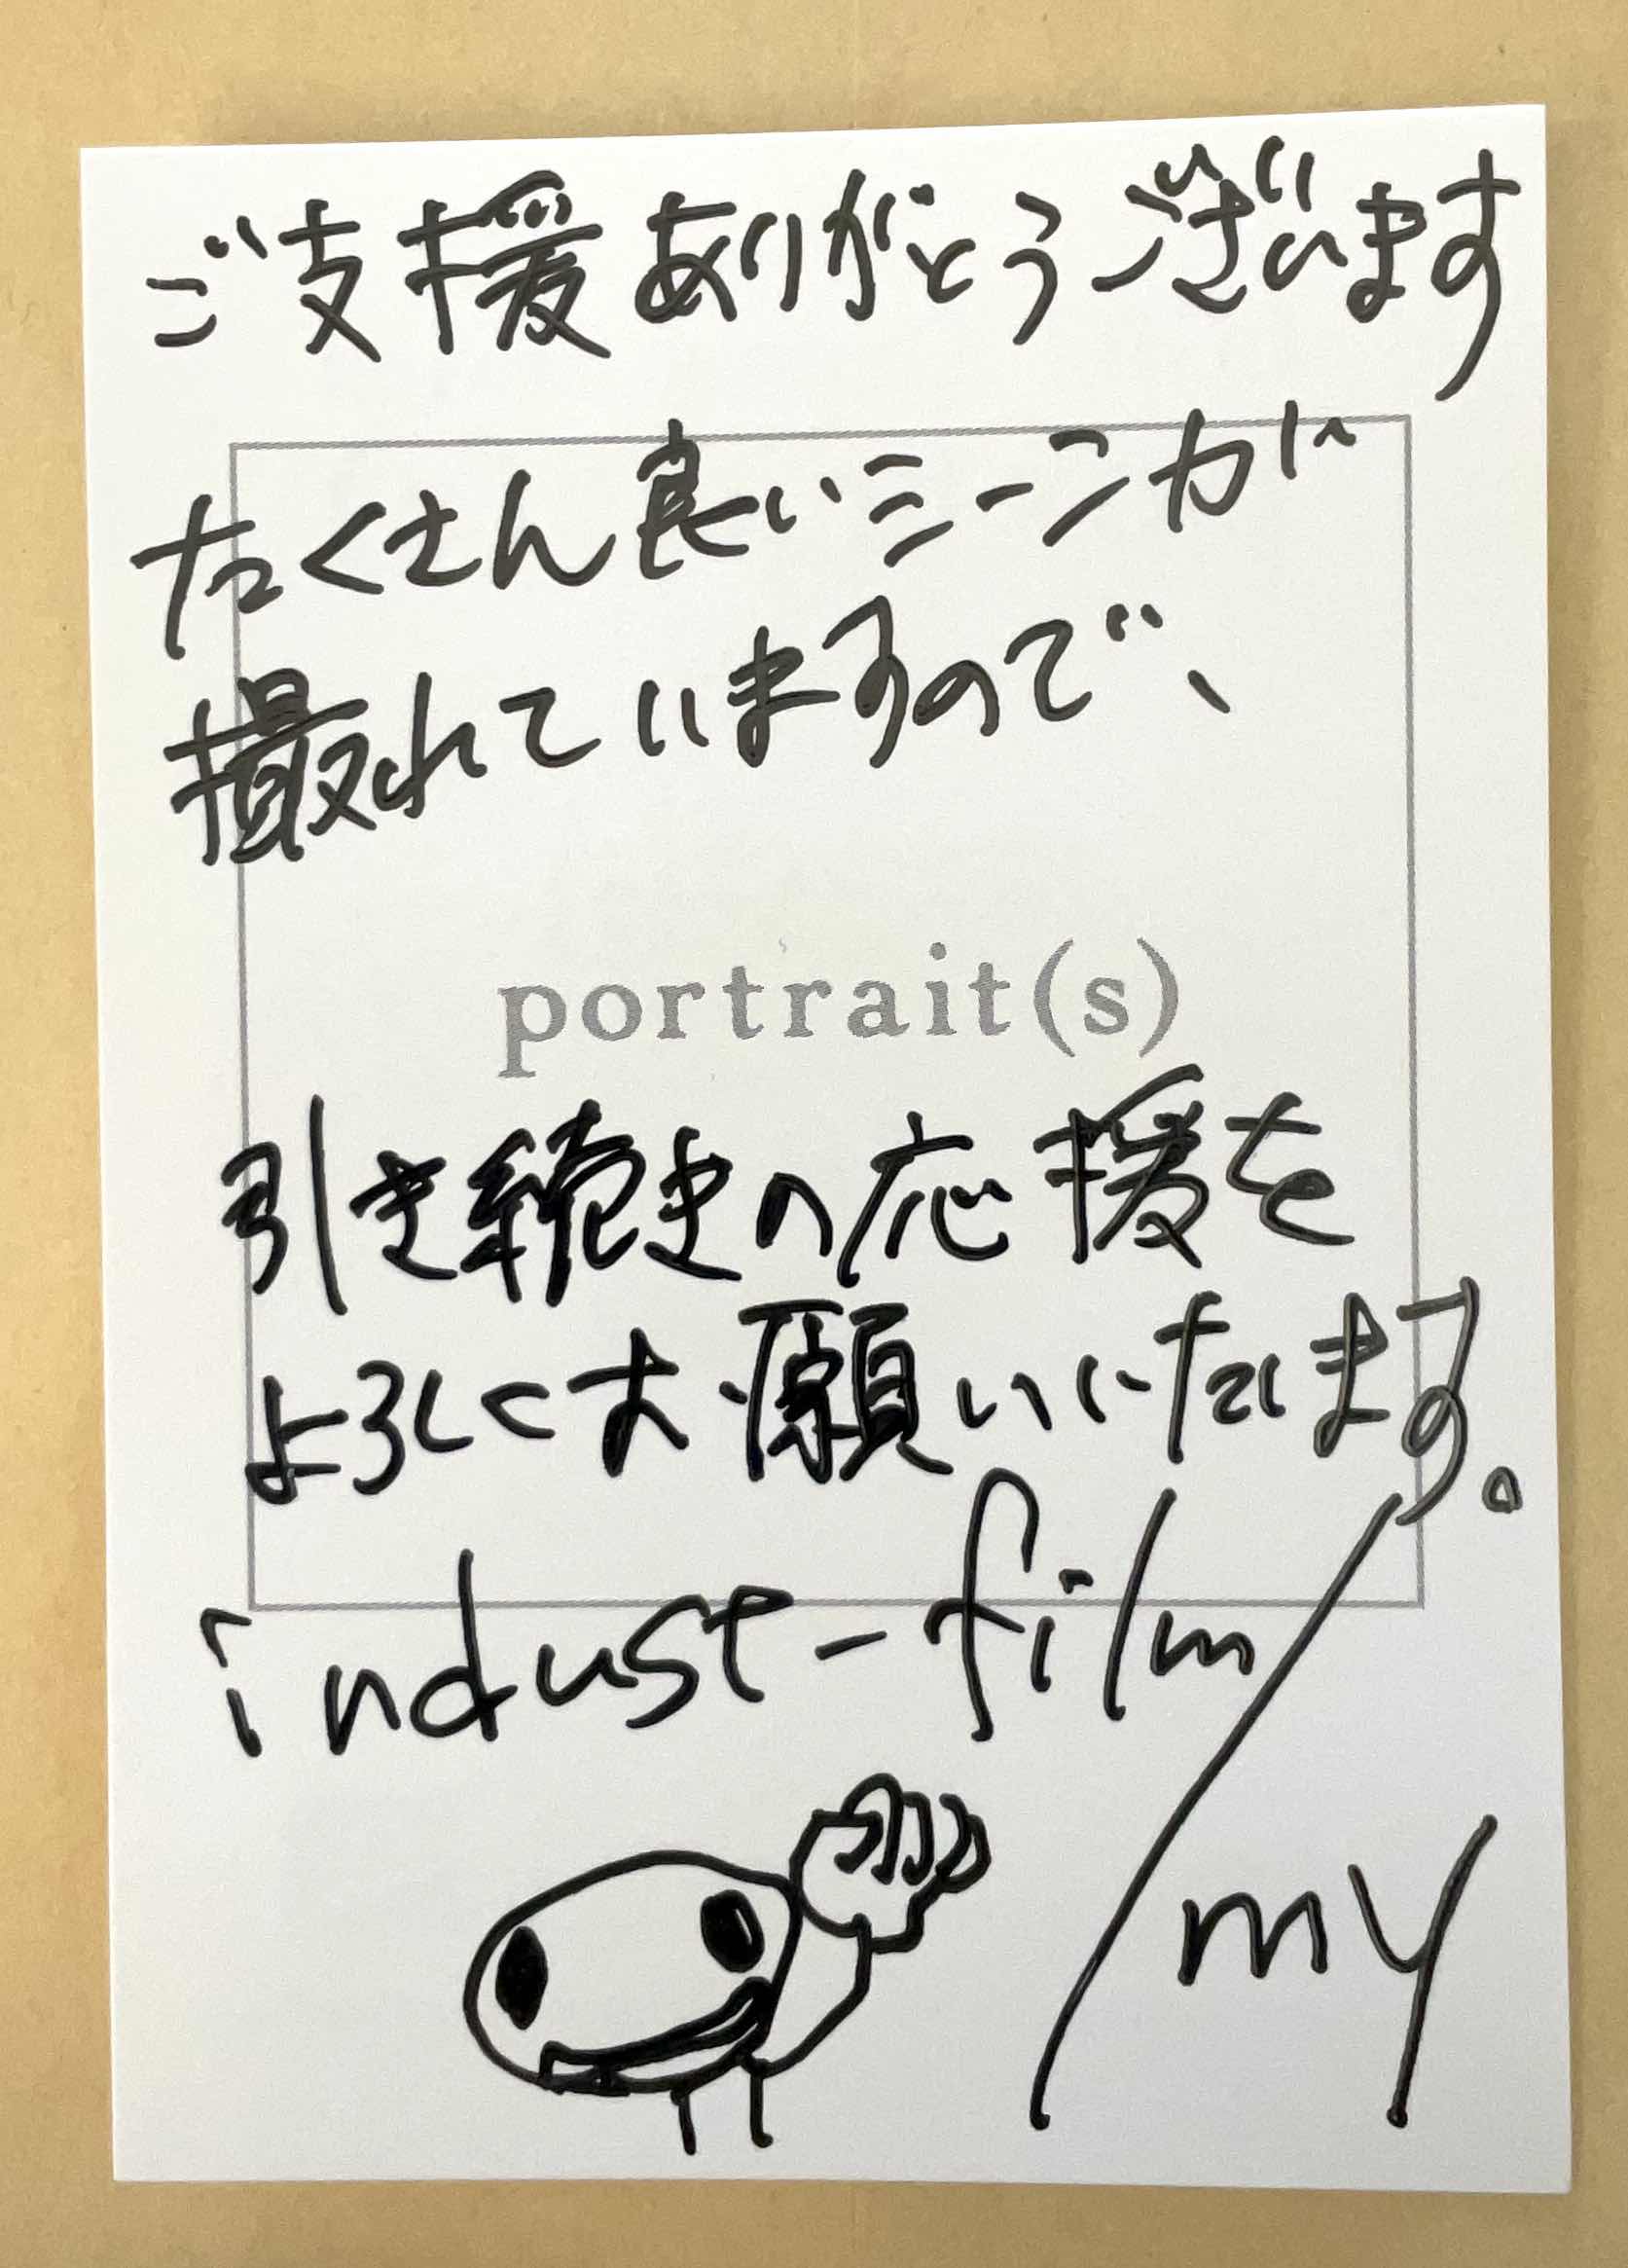 ご支援ありがとうございます
たくさん良いシーンが
撮れていますので、
portrait(s)
引き続きの応援を
よろしくお願いいたします。
indust-film/my